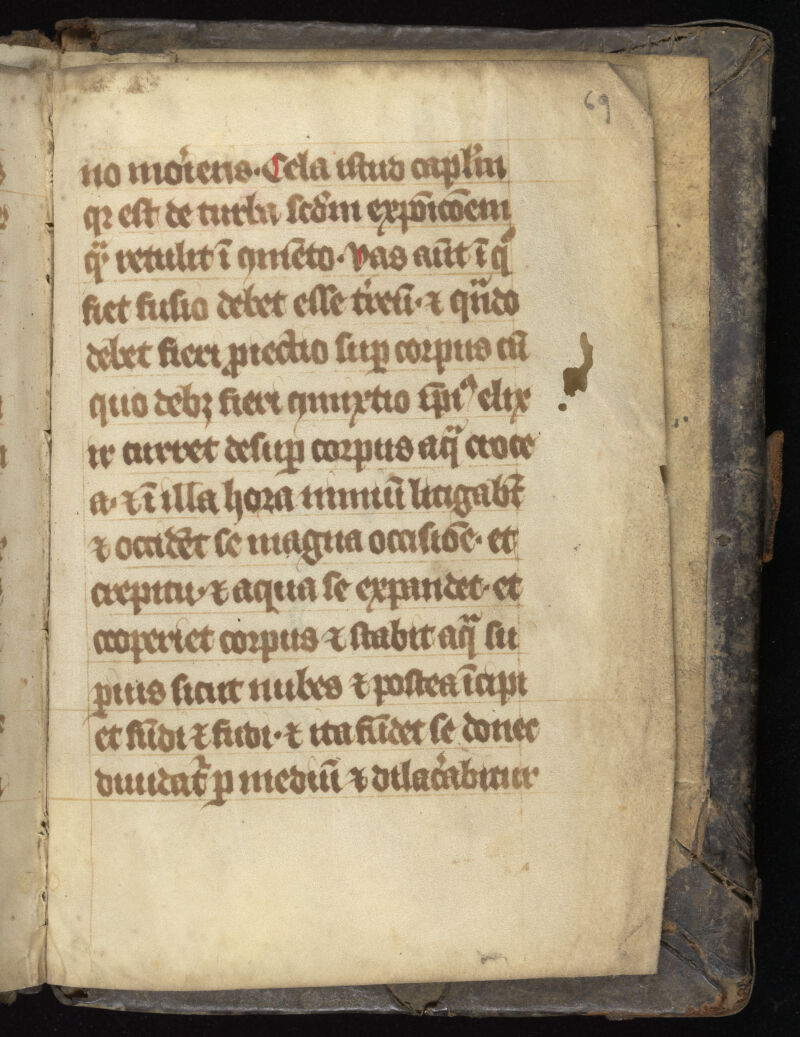 69
no moriens. Cela istud capl'm
qr est de turba scd'm expōicōem
qā retulit ī quīeto. Vas aūt ī qͦ
fiet fusio debet esse t'reū. ⁊ qn̄do
debet fieri ꝓiectio suꝑ corpus cū
quo debꝫ fieri ꝯmixtio sp̄i elix
ir curret desuꝑ corpus aqᷓ croce
a. ⁊ ī illa hora nimiū litigabt̄
⁊ occidēt se magna occisiōe. et
crepitu. ⁊ aqua se expandet. et
cooperiet corpus ⁊ stabit aqᷓ su
ꝑius sicut nubes ⁊ postea īcipi
et fūdi ⁊ fūdi. ⁊ ita fūdet se donec
diuidat̄ ꝑ mediū ⁊ dilac'abitur